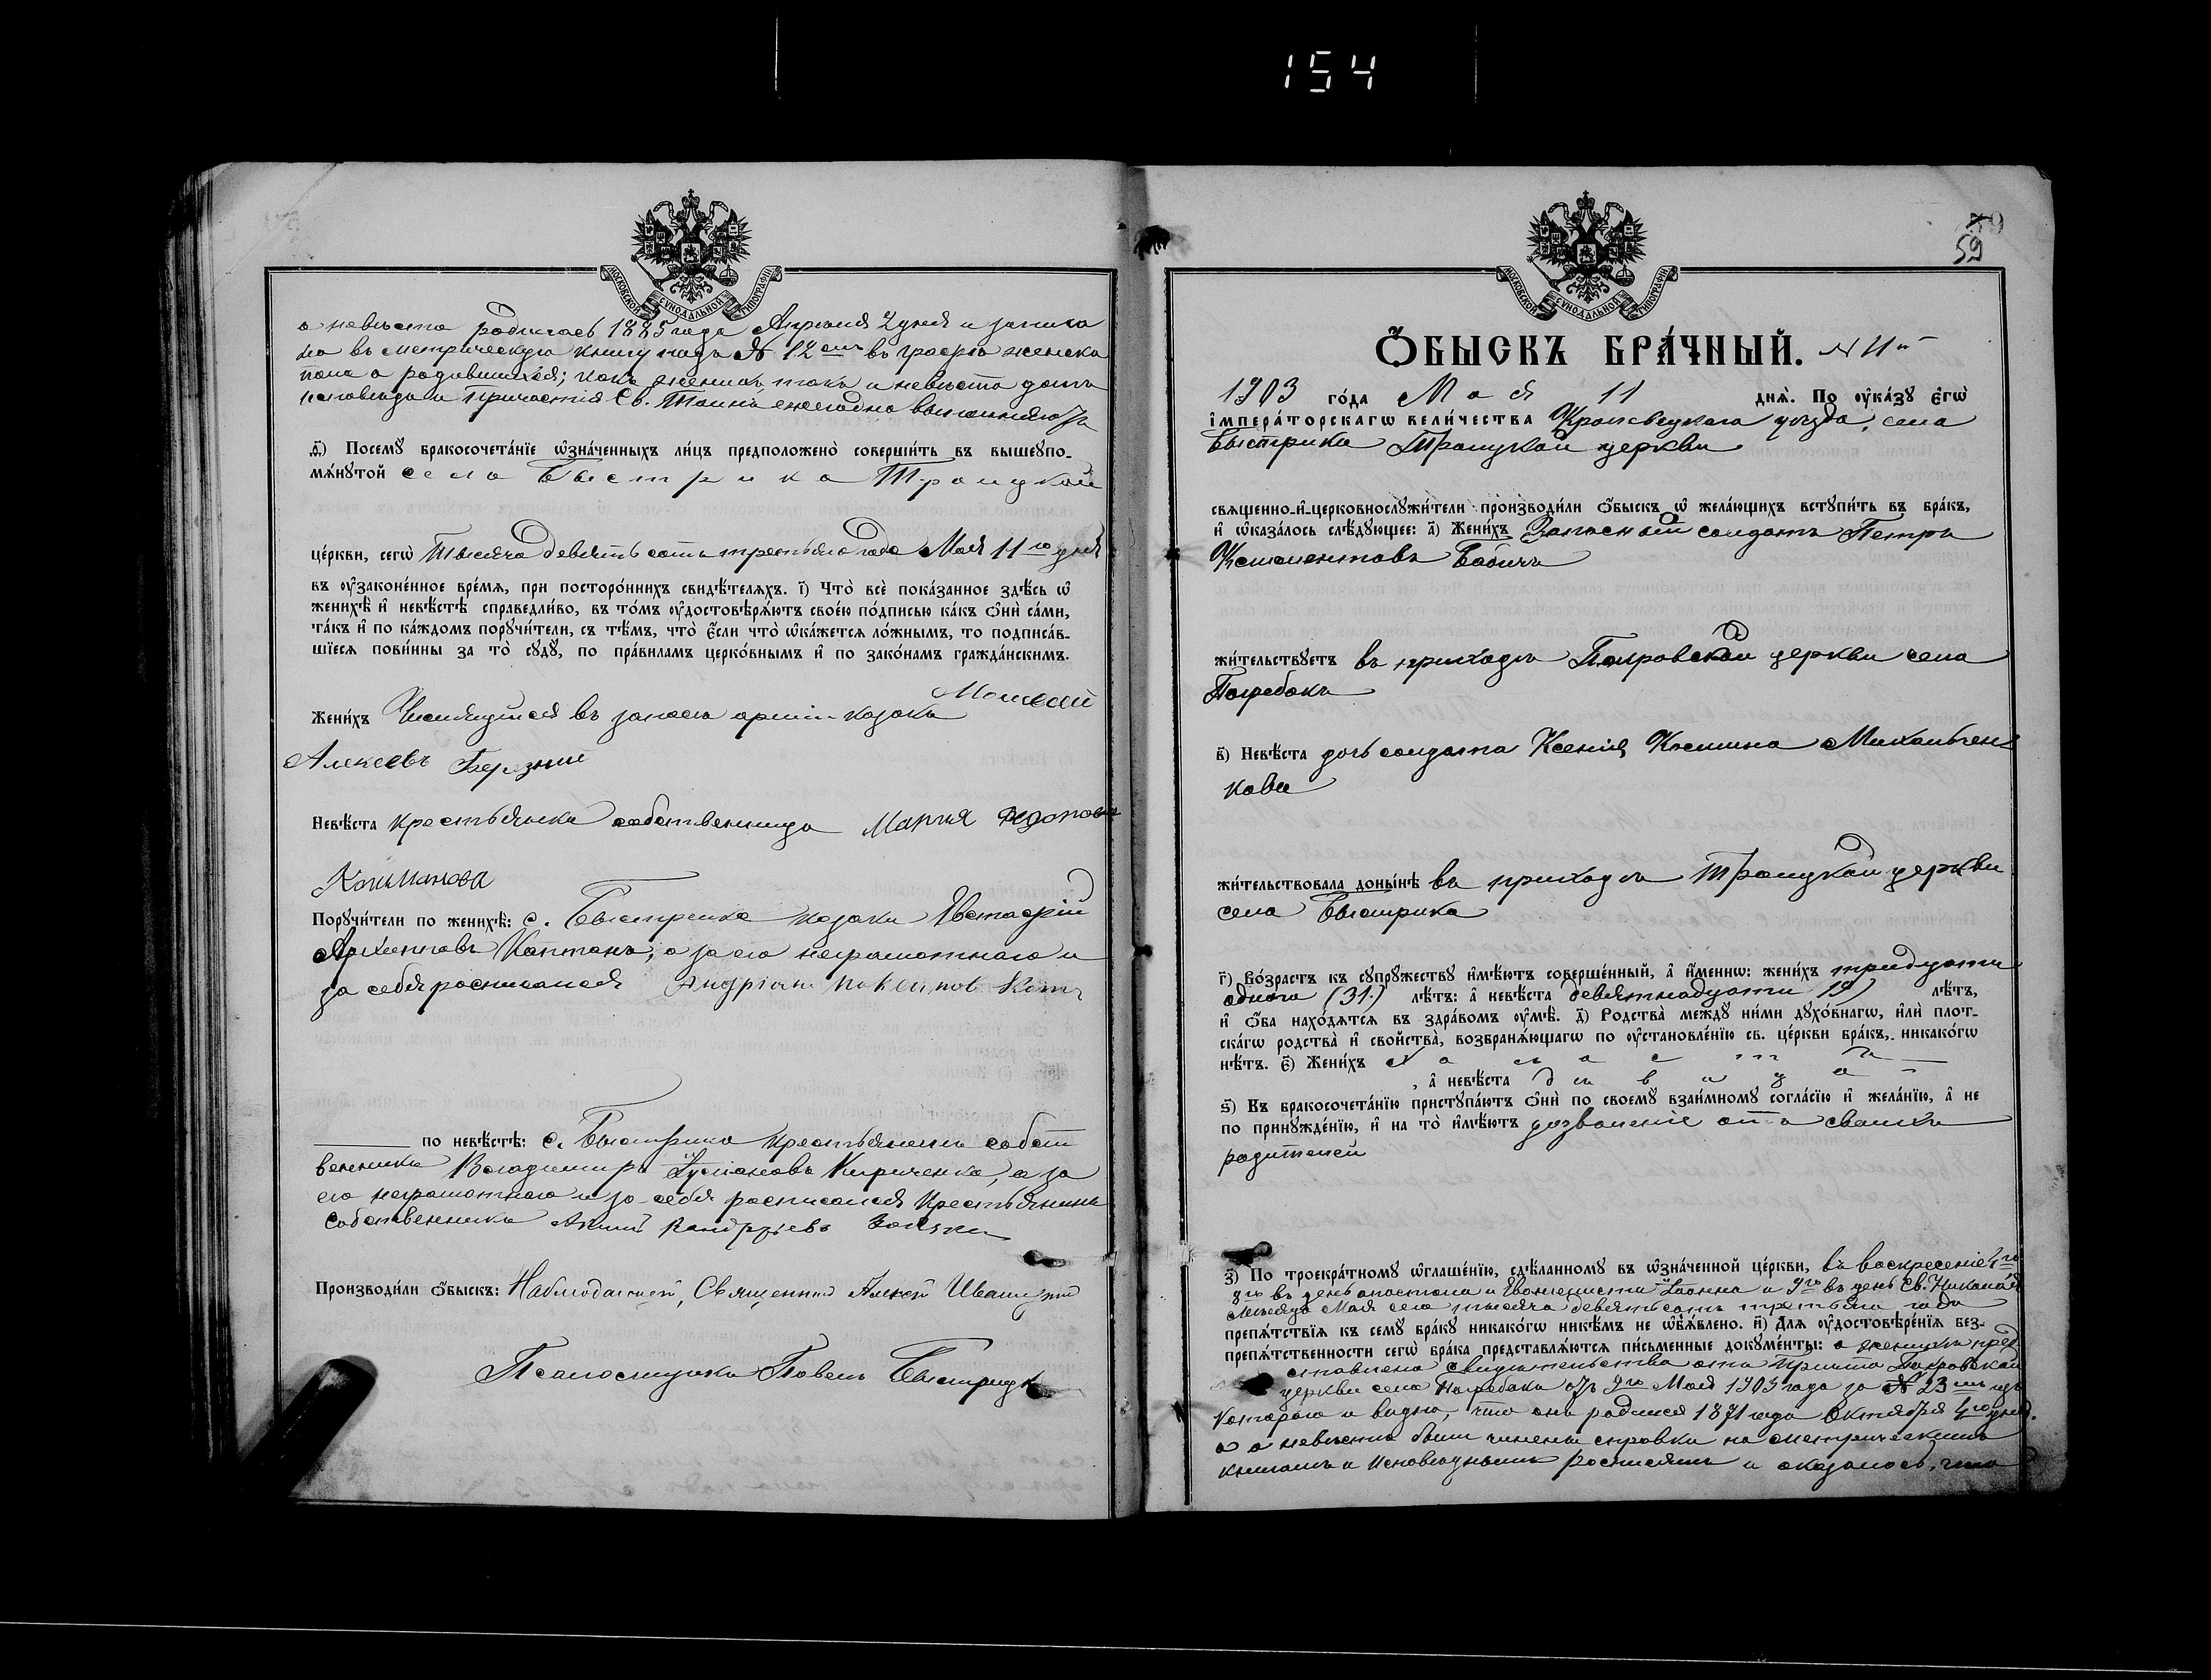 154
МОСКОВСКОЙ СѴНОДАЛЬНОЙ ТИПОГРАФІИ
а невѣста родилась 1885 года Апрѣля 2 дня и записа
на въ метрическую книгу подъ № 12емъ въ графѣ женска
пола о родившихся; какъ женихъ такъ и невѣста долгъ
исповѣди и причастія Св. Таинъ ежегодно выполняютъ
ѳ҃) Посемꙋ бракосочета́нїе ѡ҆зна́ченныхъ ли́цъ предположено̀ соверши́ть въ вышеꙋпо-
мѧ́нꙋтой села Быстрика Троицкой
це́ркви, сегѡ̀ Тысяча девятьсотъ третьяго года Мая 11го дня
въ ᲂу҆законе́нное вре́мѧ, при посторо́ннихъ свидѣ́телѧхъ. і҃) Что̀ всѐ пока́занное здѣ́сь ѡ҆
женихѣ̀ и҆ невѣ́стѣ справедли́во, въ то́мъ ᲂу҆достовѣрѧ́ютъ свое́ю по́дписью ка́къ ѻ҆нѝ са́ми,
та́къ и҆ по ка́ждомъ порꙋчи́тели, съ тѣ́мъ, что̀ є҆́сли что̀ ѡ҆ка́жетсѧ ло́жнымъ, то подписа́в-
шїесѧ пови́нны за то̀ сꙋдꙋ̀, по пра́виламъ церко́внымъ и҆ по зако́намъ гражда́нскимъ.
Жени́хъ Числящійся въ запасѣ арміи козакъ Моисей
Алексевъ Березний
Невѣ́ста крестьянка собственница Мария Федотова
Кошманова
Порꙋчи́тели по женихѣ̀: с. Быстрика козаки Евстафій
Архиповъ Каптанъ, а за его неграмотнаго и
за себя росписался Андріанъ
по невѣ́стѣ: с. Быстрика крестьянинъ собст
венникъ Владимиръ Кириченко, а за
его неграмотнаго и за себя росписался Крестьянинъ
Собственникъ
Производи́ли ѻ҆́быскъ: Наблюдатель, Священникъ Алексѣй
Псаломщикъ Павелъ
МОСКОВСКОЙ СѴНОДАЛЬНОЙ ТИПОГРАФІИ
59
59
Ѻ҆́БЫСКЪ БРА́ЧНЫЙ. № 11й
1903 го́да Мая 11 днѧ̀. По ᲂу҆ка́зꙋ є҆гѡ̀
і҆мпера́торскагѡ вели́чества Кролевецкаго уѣзда, села
Быстрика Троицкой церкви
свѧщенно-и҆-церковнослꙋжи́тели производи́ли ѻ҆́быскъ ѡ҆ жела́ющихъ встꙋпи́ть въ бра́къ,
и҆ ѡ҆каза́лось слѣ́дꙋющее: а҃) Жени́хъ Запасный солдатъ Петръ
Климентовъ Бабичъ
жи́тельствꙋетъ въ приходѣ Покровской церкви села
Погребокъ
в҃) Невѣ́ста дочь солдата Ксенія Космина Михальчен-
кова
жи́тельствовала доны́нѣ въ приходѣ Троицкой церкви
села Быстрика
г҃) Во́зрастъ къ сꙋпрꙋ́жествꙋ и҆мѣ́ютъ соверше́нный, а҆ и҆́менно: жени́хъ тридцати
одного (31.) лѣ́тъ: а҆ невѣ́ста девятнадцати 19) лѣ́тъ,
и҆ ѻ҆́ба нахо́дѧтсѧ въ здра́вомъ ᲂу҆мѣ̀. д҃) Родства̀ междꙋ ни́ми дꙋхо́внагѡ, и҆лѝ плот-
ска́гѡ родства̀ и҆ свойства̀, возбранѧ́ющагѡ по ᲂу҆становле́нїю св. це́ркви бра́къ, никако́гѡ
нѣ́тъ. є҃) Жени́хъ холостъ
, а҆ невѣ́ста дѣвица
ѕ҃) Въ бракосочета́нїю пристꙋпа́ютъ ѻ҆нѝ по своемꙋ̀ взаи́мномꙋ согла́сїю и҆ жела́нїю, а҆ не
по принꙋжде́нїю, и҆ на то̀ и҆мѣ́ютъ дозволеніе отъ своихъ
родителей
з҃) По троекра́тномꙋ ѡ҆глаше́нїю, сдѣ́ланномꙋ въ ѡ҆зна́ченной це́ркви, въ воскресеніе 4го
8го въ день апостола и Евангелиста Іоанна и 9го въ день Св. Николая
Мѣсяца Мая сего тысяча девятьсотъ третьяго года
препѧ́тствїѧ къ семꙋ̀ бра́кꙋ никако́гѡ никѣ́мъ не ѡ҆б̾ѧ́влено. и҃) Длѧ ᲂу҆достовѣре́нїѧ без-
препѧ́тственности сегѡ̀ бра́ка представлѧ́ютсѧ пи́сьменные докꙋме́нты: о женихѣ пред
ставлено свидѣтельство отъ причта Покровской
церкви села Погребокъ отъ 9го Мая 1903 года за № 23мъ изъ
котораго и видно, что онъ родился 1871 года Октября 4го дня.
а о невѣстѣ были чинены справки по метрическимъ
книгамъ и исповѣднымъ росписямъ и оказалось, что